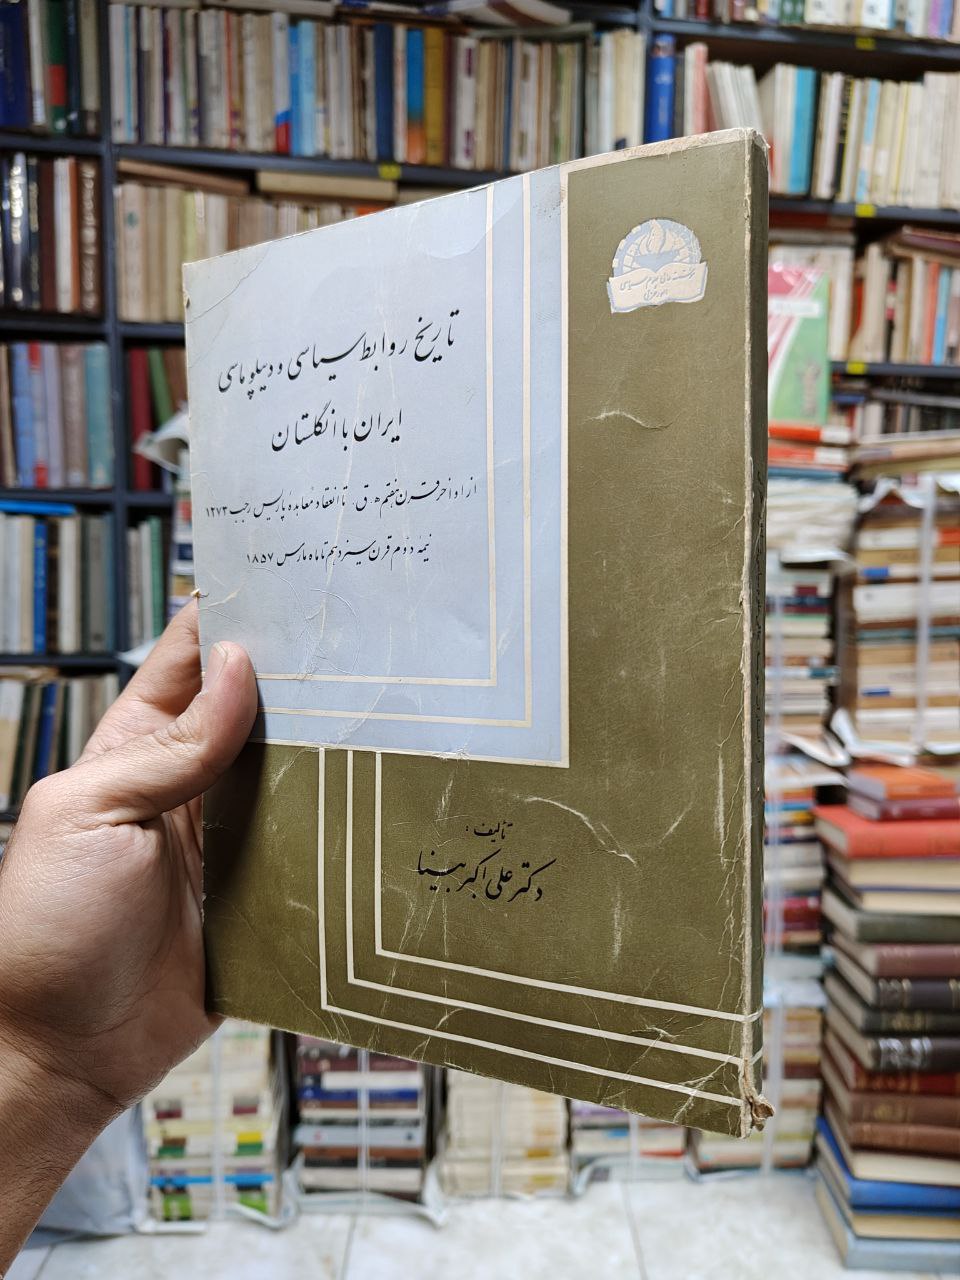 تاریخ روابط سیاسی و دیپلوماسی
ایران با انگلستان
از اواخر قرن هفتم ه. ق. تا انعقاد معاهدهٔ پاریس رجب ۱۲۷۳
نیمه دوم قرن سیزدهم تا ماه مارس ۱۸۵۷
رشته عالی علوم سیاسی
تألیف:
دکتر علی اکبر بینا